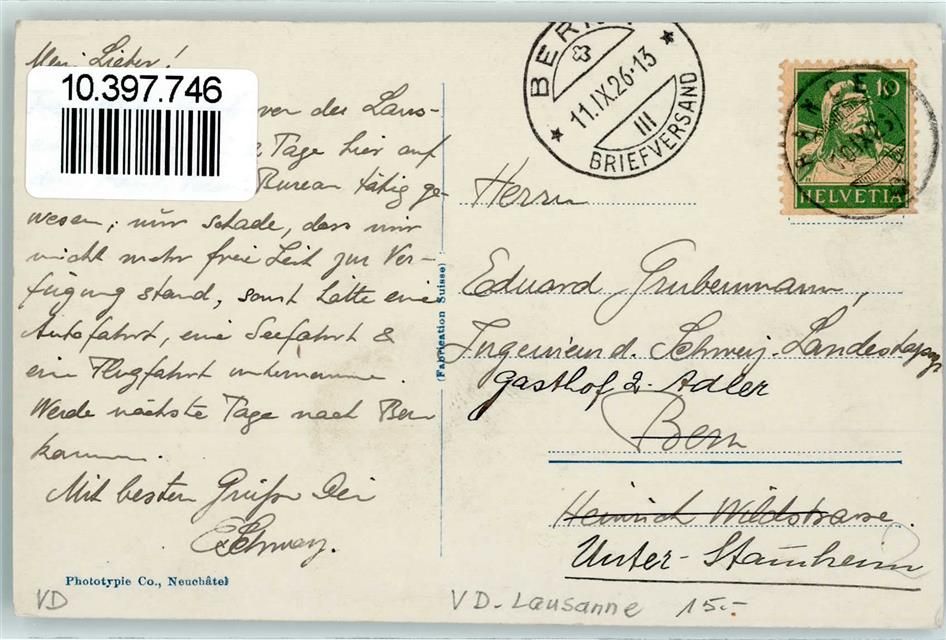 Mein Lieber!
10.397.746
von der Laus-
Tage hier auf
Bureau tätig ge-
wesen; nur schade, dass mir
nicht mehr freie Zeit zur Ver-
fügung stand, sonst hätte eine
Autofahrt, eine Seefahrt &
eine Flugfahrt unternommen.
Werde nächste Tage nach Bern
kommen.
Mit besten Grüssen Dein
Phototypie Co., Neuchâtel
VD
(Fabrication Suisse)
BERN
11.IX.26-13
III
BRIEFVERSAND
10
HELVETIA
Herrn
Eduard Grubenmann,
Ingenieur d. Schweiz. Landestopogr.
Gasthof z. Adler
Bern
Heinrich Wildstrasse.
Unter-Stammheim
VD-Lausanne 15.-